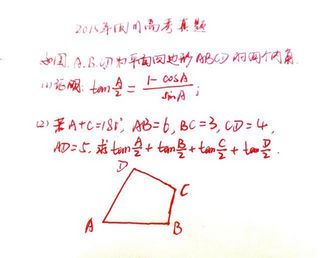 2015年四川高考真题
如图,A.B.C.D为平面四边形ABCD的四个内角.
(1)证明: tan A/2 = (1-cosA)/sinA ;
(2)若A+C=180°, AB=6, BC=3, CD=4,
AD=5,求tan A/2 + tan B/2 + tan C/2 + tan D/2.
D
C
A B